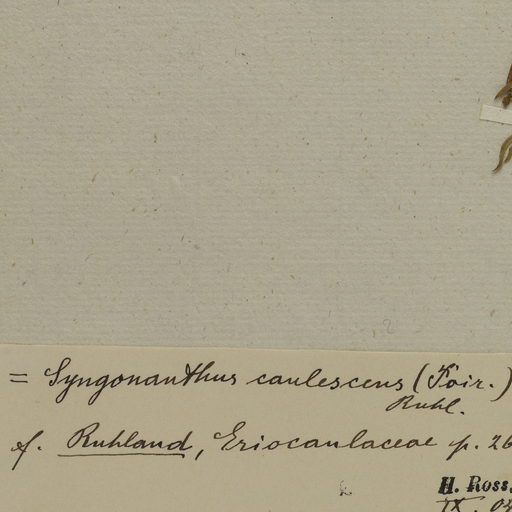 = Syngonanthus caulescens (Poir.)
Ruhl.
cf. Ruhland, Eriocaulaceae p. 26
H. Ross.
IX. 04